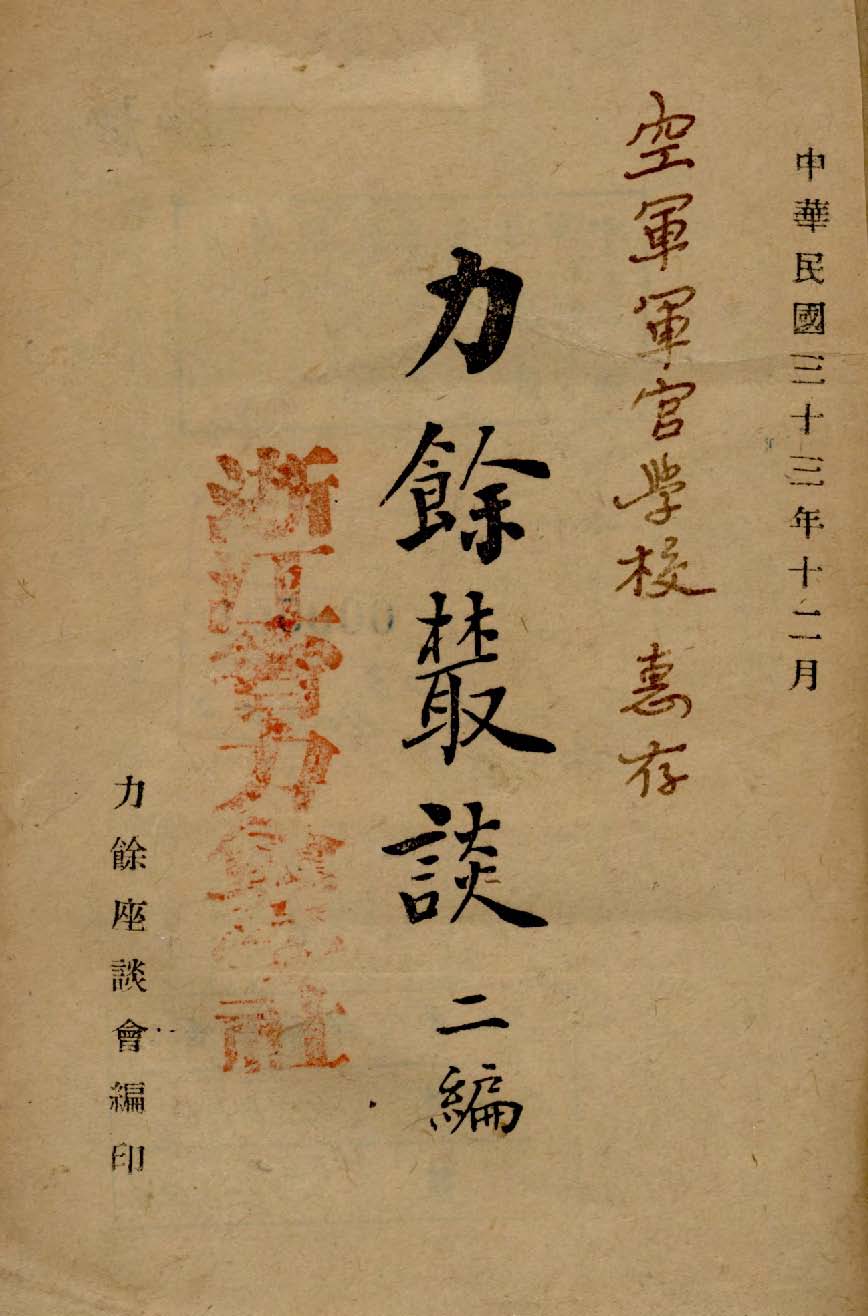 中華民國三十三年十二月
空軍軍官学校 惠存
力餘叢談 二編
浙江省力餘學社
力餘座談會編印